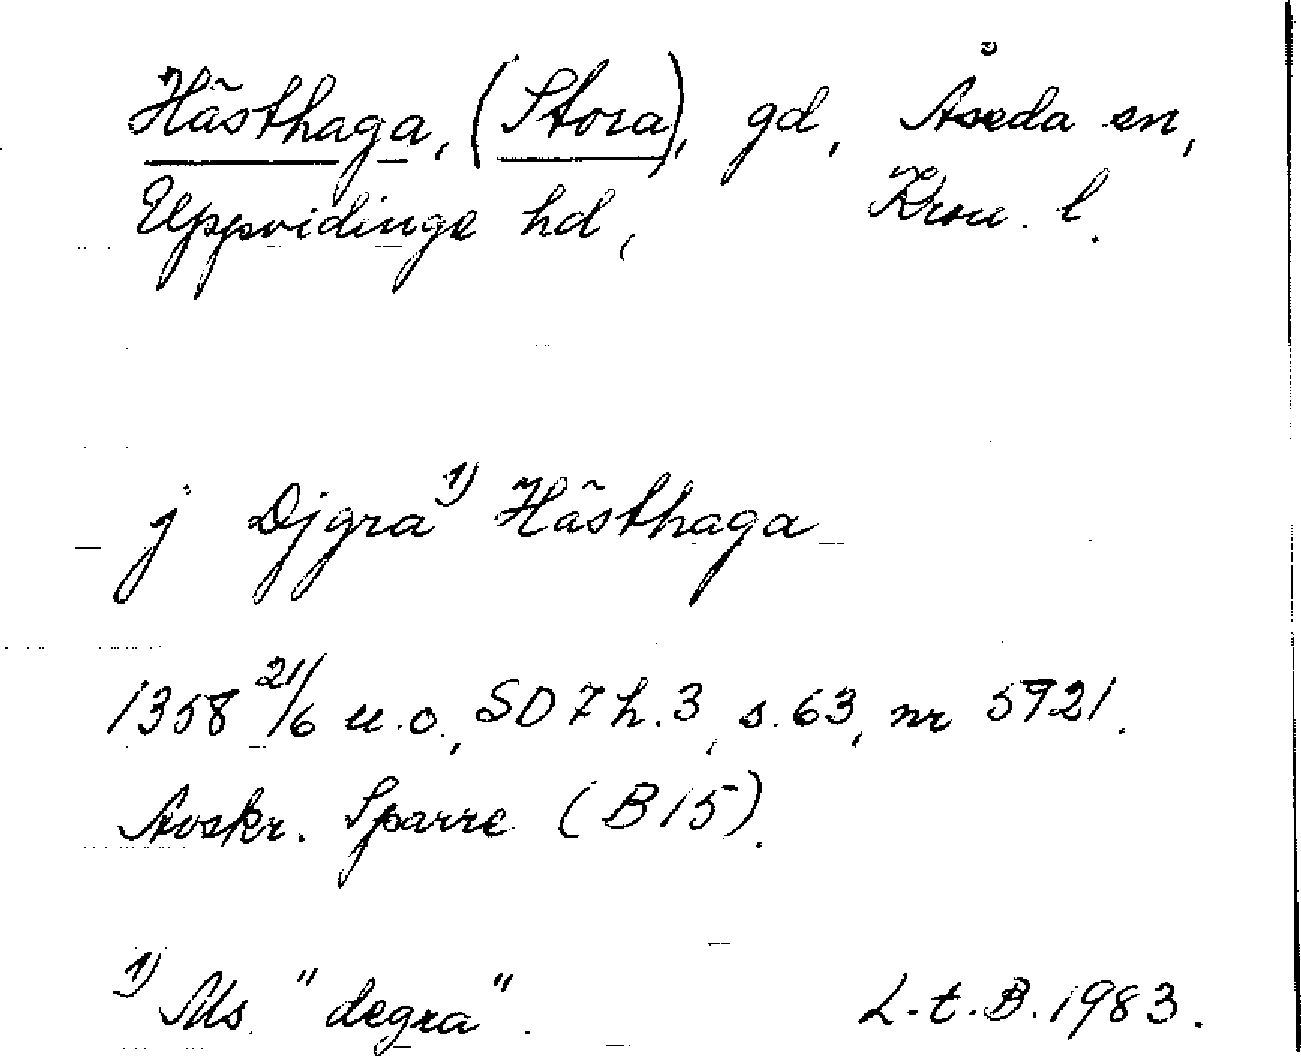 Hästhaga, (Stora), gd, Åseda sn,
Uppvidinge hd, Kron. l.
j Djgra 1) Hästhaga
1358 21/6 u.o., SD 7 h.3, s.63, nr 5921.
Avskr. Sparre (B15).
1) Ms. "degra". L.t.B.1983.